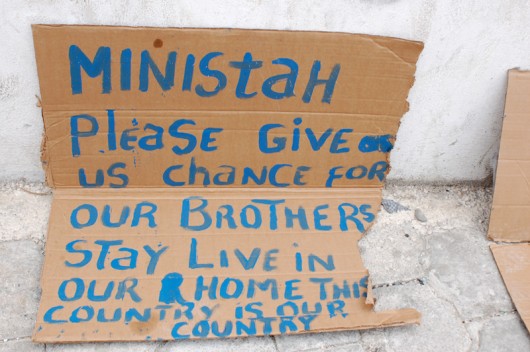 MINIStaH
Please GIVE
US CHANCE FOR
OUR BROTHERS
Stay LIVE in
OUR HOME THIS
COUNTRY IS OUR
COUNTRY